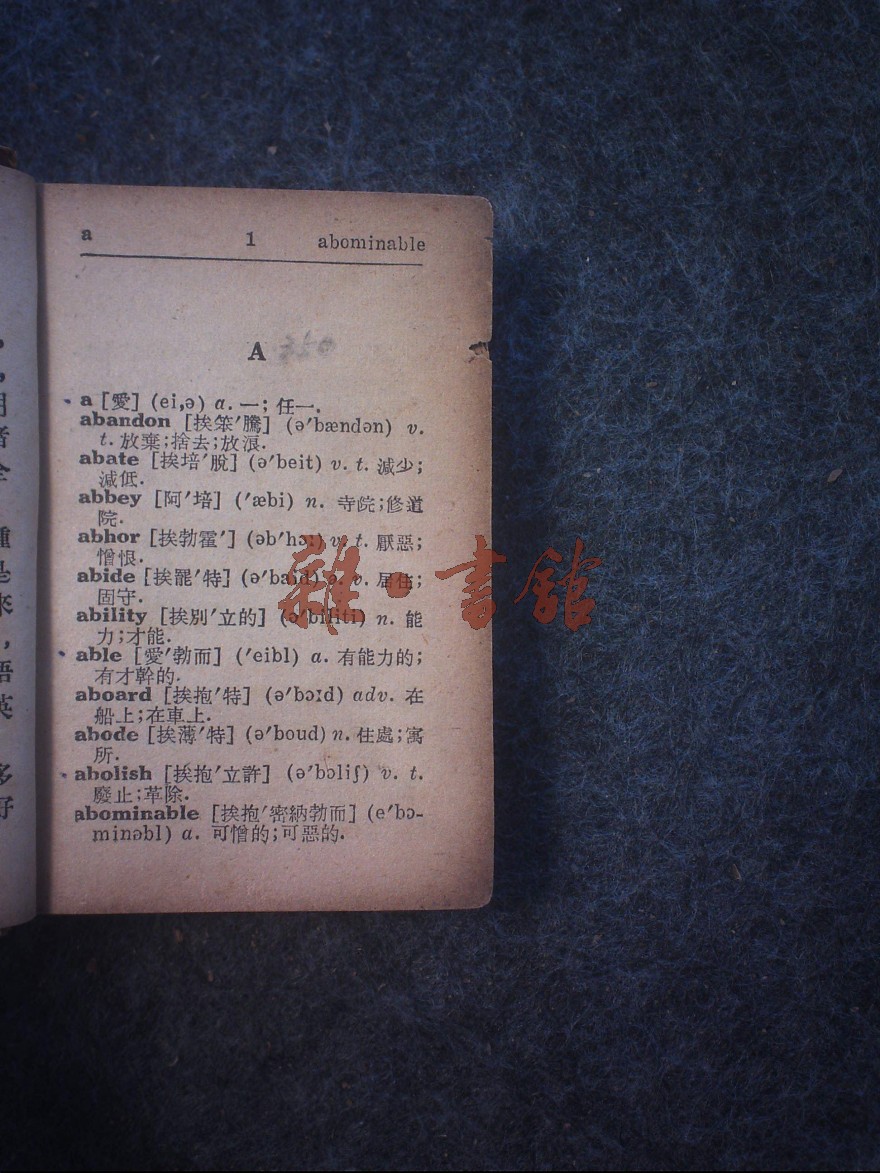 a 1 abominable
A
a [愛] (ei,ə) a. 一; 任一.
abandon [挨笨′騰] (ə′bændən) v.
t. 放棄;捨去;放浪.
abate [挨培′脫] (ə′beit) v. t. 減少;
減低.
abbey [阿′培] (′æbi) n. 寺院;修道
院.
abhor [挨勃霍′] (əb′hɔː) v. t. 厭惡;
憎恨.
abide [挨罷′特] (ə′baid) v. 居住;
固守.
ability [挨別′立的] (ə′biliti) n. 能
力;才能.
able [愛′勃而] (′eibl) a. 有能力的;
有才幹的.
aboard [挨抱′特] (ə′bɔːd) adv. 在
船上;在車上.
abode [挨薄′特] (ə′boud) n. 住處;寓
所.
abolish [挨抱′立許] (ə′bɔliʃ) v. t.
廢止;革除.
abominable [挨抱′密納勃而] (e′bɔ-
minəbl) a. 可憎的;可惡的.
雜·書館